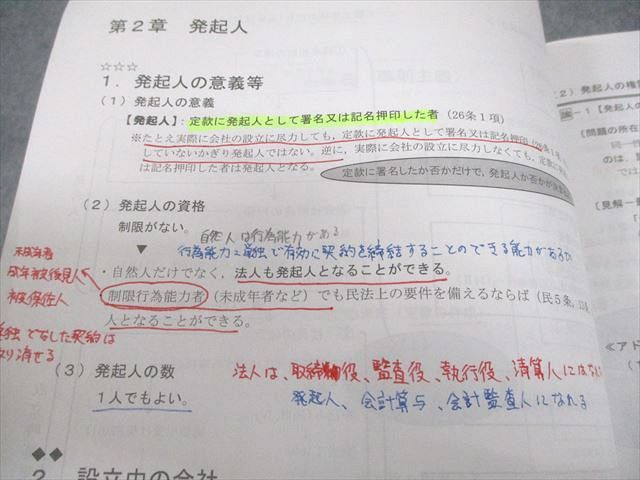 第２章　発起人
☆☆☆
１．発起人の意義等
（１）発起人の意義
【発起人】：定款に発起人として署名又は記名押印した者（26条１項）
※たとえ実際に会社の設立に尽力しても，定款に発起人として署名又は記名押印
していないかぎり発起人ではない。逆に，実際に会社の設立に尽力しなくても，定款に
は記名押印した者は発起人となる。
定款に署名したか否かだけで，発起人か否かが
（２）発起人の資格
制限がない。
自然人は行為能力がある
▼
行為能力＝単独で有効に契約を締結することのできる能力があるか
・自然人だけでなく，法人も発起人となることができる。
制限行為能力者（未成年者など）でも民法上の要件を備えるならば（民５条，
人となることができる。
未成年者
成年被後見人
被保佐人
単独でなした契約は
取り消せる
（３）発起人の数
１人でもよい。
法人は、取締役、監査役、執行役、清算人には
発起人、会計参与、会計監査人になれる
◆◆
２．設立中の会社
（２）発起人の権
論－1【発起人
〔問題の所在
のは，
〔見解一
≪アド